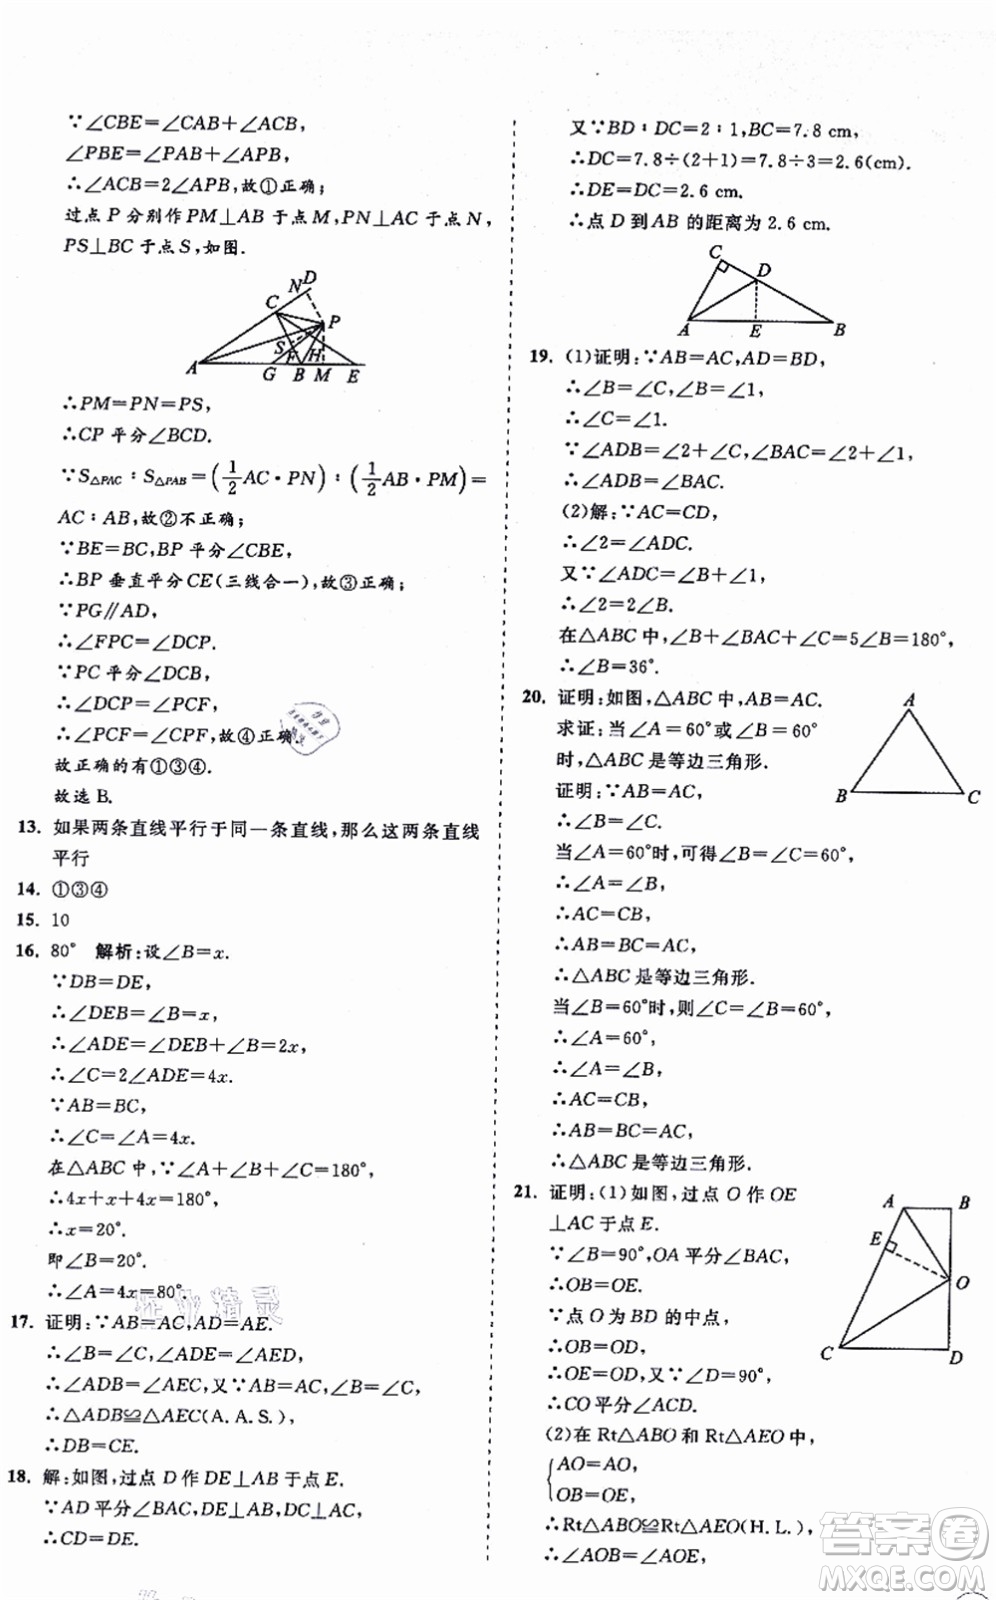 ∵∠CBE=∠CAB+∠ACB,
∠PBE=∠PAB+∠APB,
∴∠ACB=2∠APB,故①正确;
过点 P 分别作 PM⊥AB 于点 M,PN⊥AC 于点 N,
PS⊥BC 于点 S,如图.
N D
C
P
S
F H
A G B M E
∴PM=PN=PS,
∴CP 平分∠BCD.
∵S△PAC∶S△PAB=(1/2 AC·PN)∶(1/2 AB·PM)=
AC∶AB,故②不正确;
∵BE=BC,BP 平分∠CBE,
∴BP 垂直平分 CE(三线合一),故③正确;
∵PG∥AD,
∴∠FPC=∠DCP.
∵PC 平分∠DCB,
∴∠DCP=∠PCF,
∴∠PCF=∠CPF,故④正确.
故正确的有①③④.
故选 B.
13. 如果两条直线平行于同一条直线,那么这两条直线
平行
14. ①③④
15. 10
16. 80° 解析:设∠B=x.
∵DB=DE,
∴∠DEB=∠B=x,
∴∠ADE=∠DEB+∠B=2x,
∴∠C=2∠ADE=4x.
∵AB=BC,
∴∠C=∠A=4x.
在△ABC 中,∵∠A+∠B+∠C=180°,
∴4x+x+4x=180°,
∴x=20°.
即∠B=20°.
∴∠A=4x=80°.
17. 证明:∵AB=AC,AD=AE.
∴∠B=∠C,∠ADE=∠AED,
∴∠ADB=∠AEC,又∵AB=AC,∠B=∠C,
∴△ADB≌△AEC(A.A.S.),
∴DB=CE.
18. 解:如图,过点 D 作 DE⊥AB 于点 E.
∵AD 平分∠BAC,DE⊥AB,DC⊥AC,
∴CD=DE.
又∵BD∶DC=2∶1,BC=7.8 cm,
∴DC=7.8÷(2+1)=7.8÷3=2.6(cm).
∴DE=DC=2.6 cm.
∴点 D 到 AB 的距离为 2.6 cm.
C
D
A E B
19. (1)证明:∵AB=AC,AD=BD,
∴∠B=∠C,∠B=∠1,
∴∠C=∠1.
∵∠ADB=∠2+∠C,∠BAC=∠2+∠1,
∴∠ADB=∠BAC.
(2)解:∵AC=CD,
∴∠2=∠ADC.
又∵∠ADC=∠B+∠1,
∴∠2=2∠B.
在△ABC 中,∠B+∠BAC+∠C=5∠B=180°,
∴∠B=36°.
20. 证明:如图,△ABC 中,AB=AC.
求证:当∠A=60°或∠B=60°
时,△ABC 是等边三角形.
证明:∵AB=AC,
A
B C
∴∠B=∠C.
当∠A=60°时,可得∠B=∠C=60°,
∴∠A=∠B,
∴AC=CB,
∴AB=BC=AC,
∴△ABC 是等边三角形.
当∠B=60°时,则∠C=60°,
∴∠A=60°,
∴∠A=∠B,
∴AC=CB,
∴AB=BC=AC,
∴△ABC 是等边三角形.
21. 证明:(1)如图,过点 O 作 OE
⊥AC 于点 E.
∵∠B=90°,OA 平分∠BAC,
∴OB=OE.
∵点 O 为 BD 的中点,
∴OB=OD,
∴OE=OD,又∵∠D=90°,
∴CO 平分∠ACD.
A B
E
O
C D
(2)在 Rt△ABO 和 Rt△AEO 中,
{AO=AO,
OB=OE,
∴Rt△ABO≌Rt△AEO(H.L.),
∴∠AOB=∠AOE,
作业精灵
答案圈
MXQE.COM